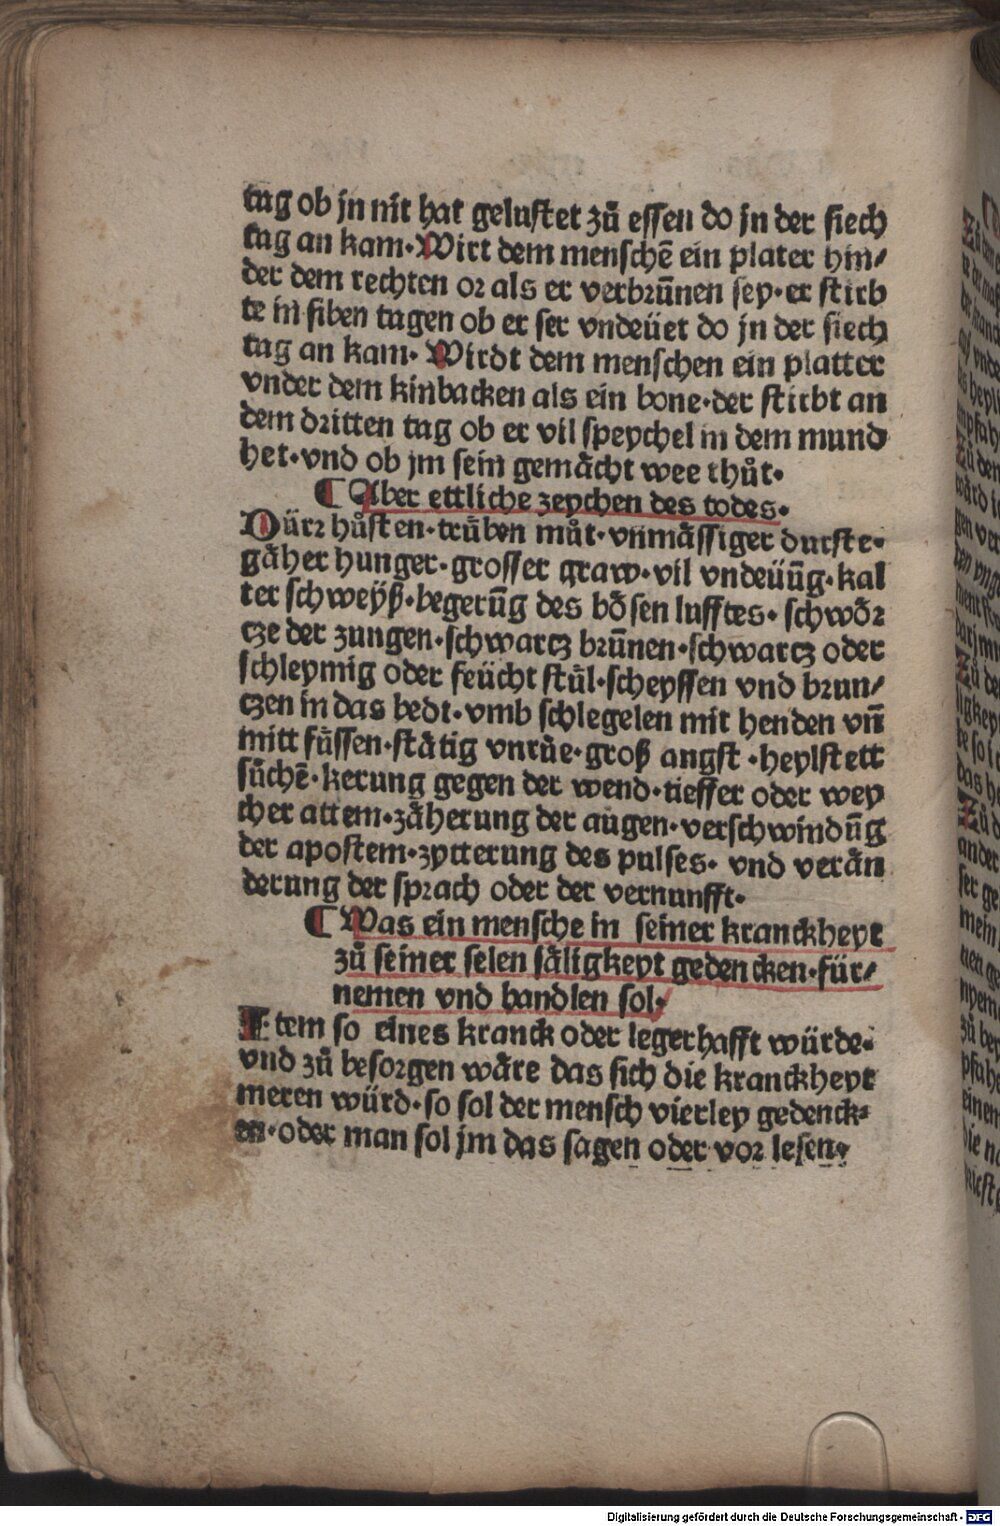 tag ob jn nit hat gelustet zů essen do jn der siech
tag an kam. Wirt dem menschē ein plater hin/
der dem rechten or als er verbrūnen sey. er stirb
te in siben tagen ob er ser vndeüet do jn der siech
tag an kam. Wirdt dem menschen ein platter
vnder dem kinbacken als ein bone. der stirbt an
dem dritten tag ob er vil speychel in dem mund
het. vnd ob jm sein gemächt wee thůt.
¶ Aber ettliche zeychen des todes.
Dürr hůsten. trůben můt. vnmässiger durste.
gäher hunger. grosser graw. vil vndeüūg. kal
ter schweÿß. begerūg des bösen lufftes. schwör
cze der zungen. schwartz brūnen. schwartz oder
schleymig oder feücht stůl. scheyssen vnd brun/
czen in das bedt. vmb schlegelen mit henden vn̄
mitt füssen. stätig vnrůe. groß angst . heylstett
sůchē. kerung gegen der wend. tieffer oder wey
cher attem. zäherung der augen. verschwindūg
der apostem. zytterung des pulses. vnd verän
derung der sprach oder der vernunfft.
¶ Was ein mensche in seiner kranckheyt
zů seiner selen säligkeyt gedencken. für/
nemen vnd handlen sol.
Item so eines kranck oder legerhafft würde.
vnd zů besorgen wäre das sich die kranckheyt
meren würd. so sol der mensch vierley gedenck=
en. oder man sol jm das sagen oder vor lesen.
Digitalisierung gefördert durch die Deutsche Forschungsgemeinschaft - DFG